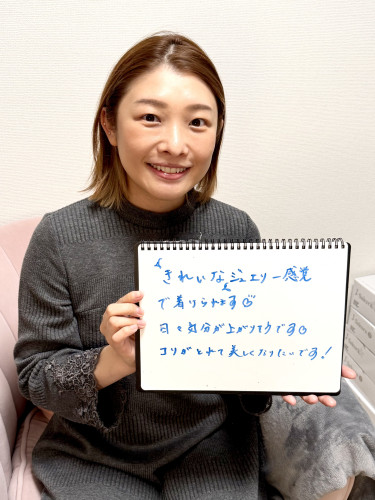 きれいなジュエリー感覚
で着けられます
日々気分が上がりそうです
コリがとれて美しくなりたいです!